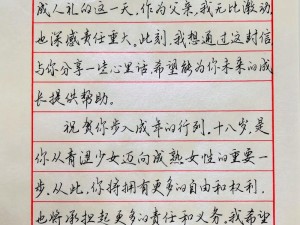 成人礼的这一天，作为父亲，我无比激动
也深感责任重大。此刻，我想通过这封信
与你分享一些心里话，希望能为你未来的成
长提供帮助。
祝贺你步入成年的行列。十八岁，是
你从青涩少女迈向成熟女性的重要一
步。从此，你将拥有更多的自由和权利，
也将承担起更多的责任和义务。我希望